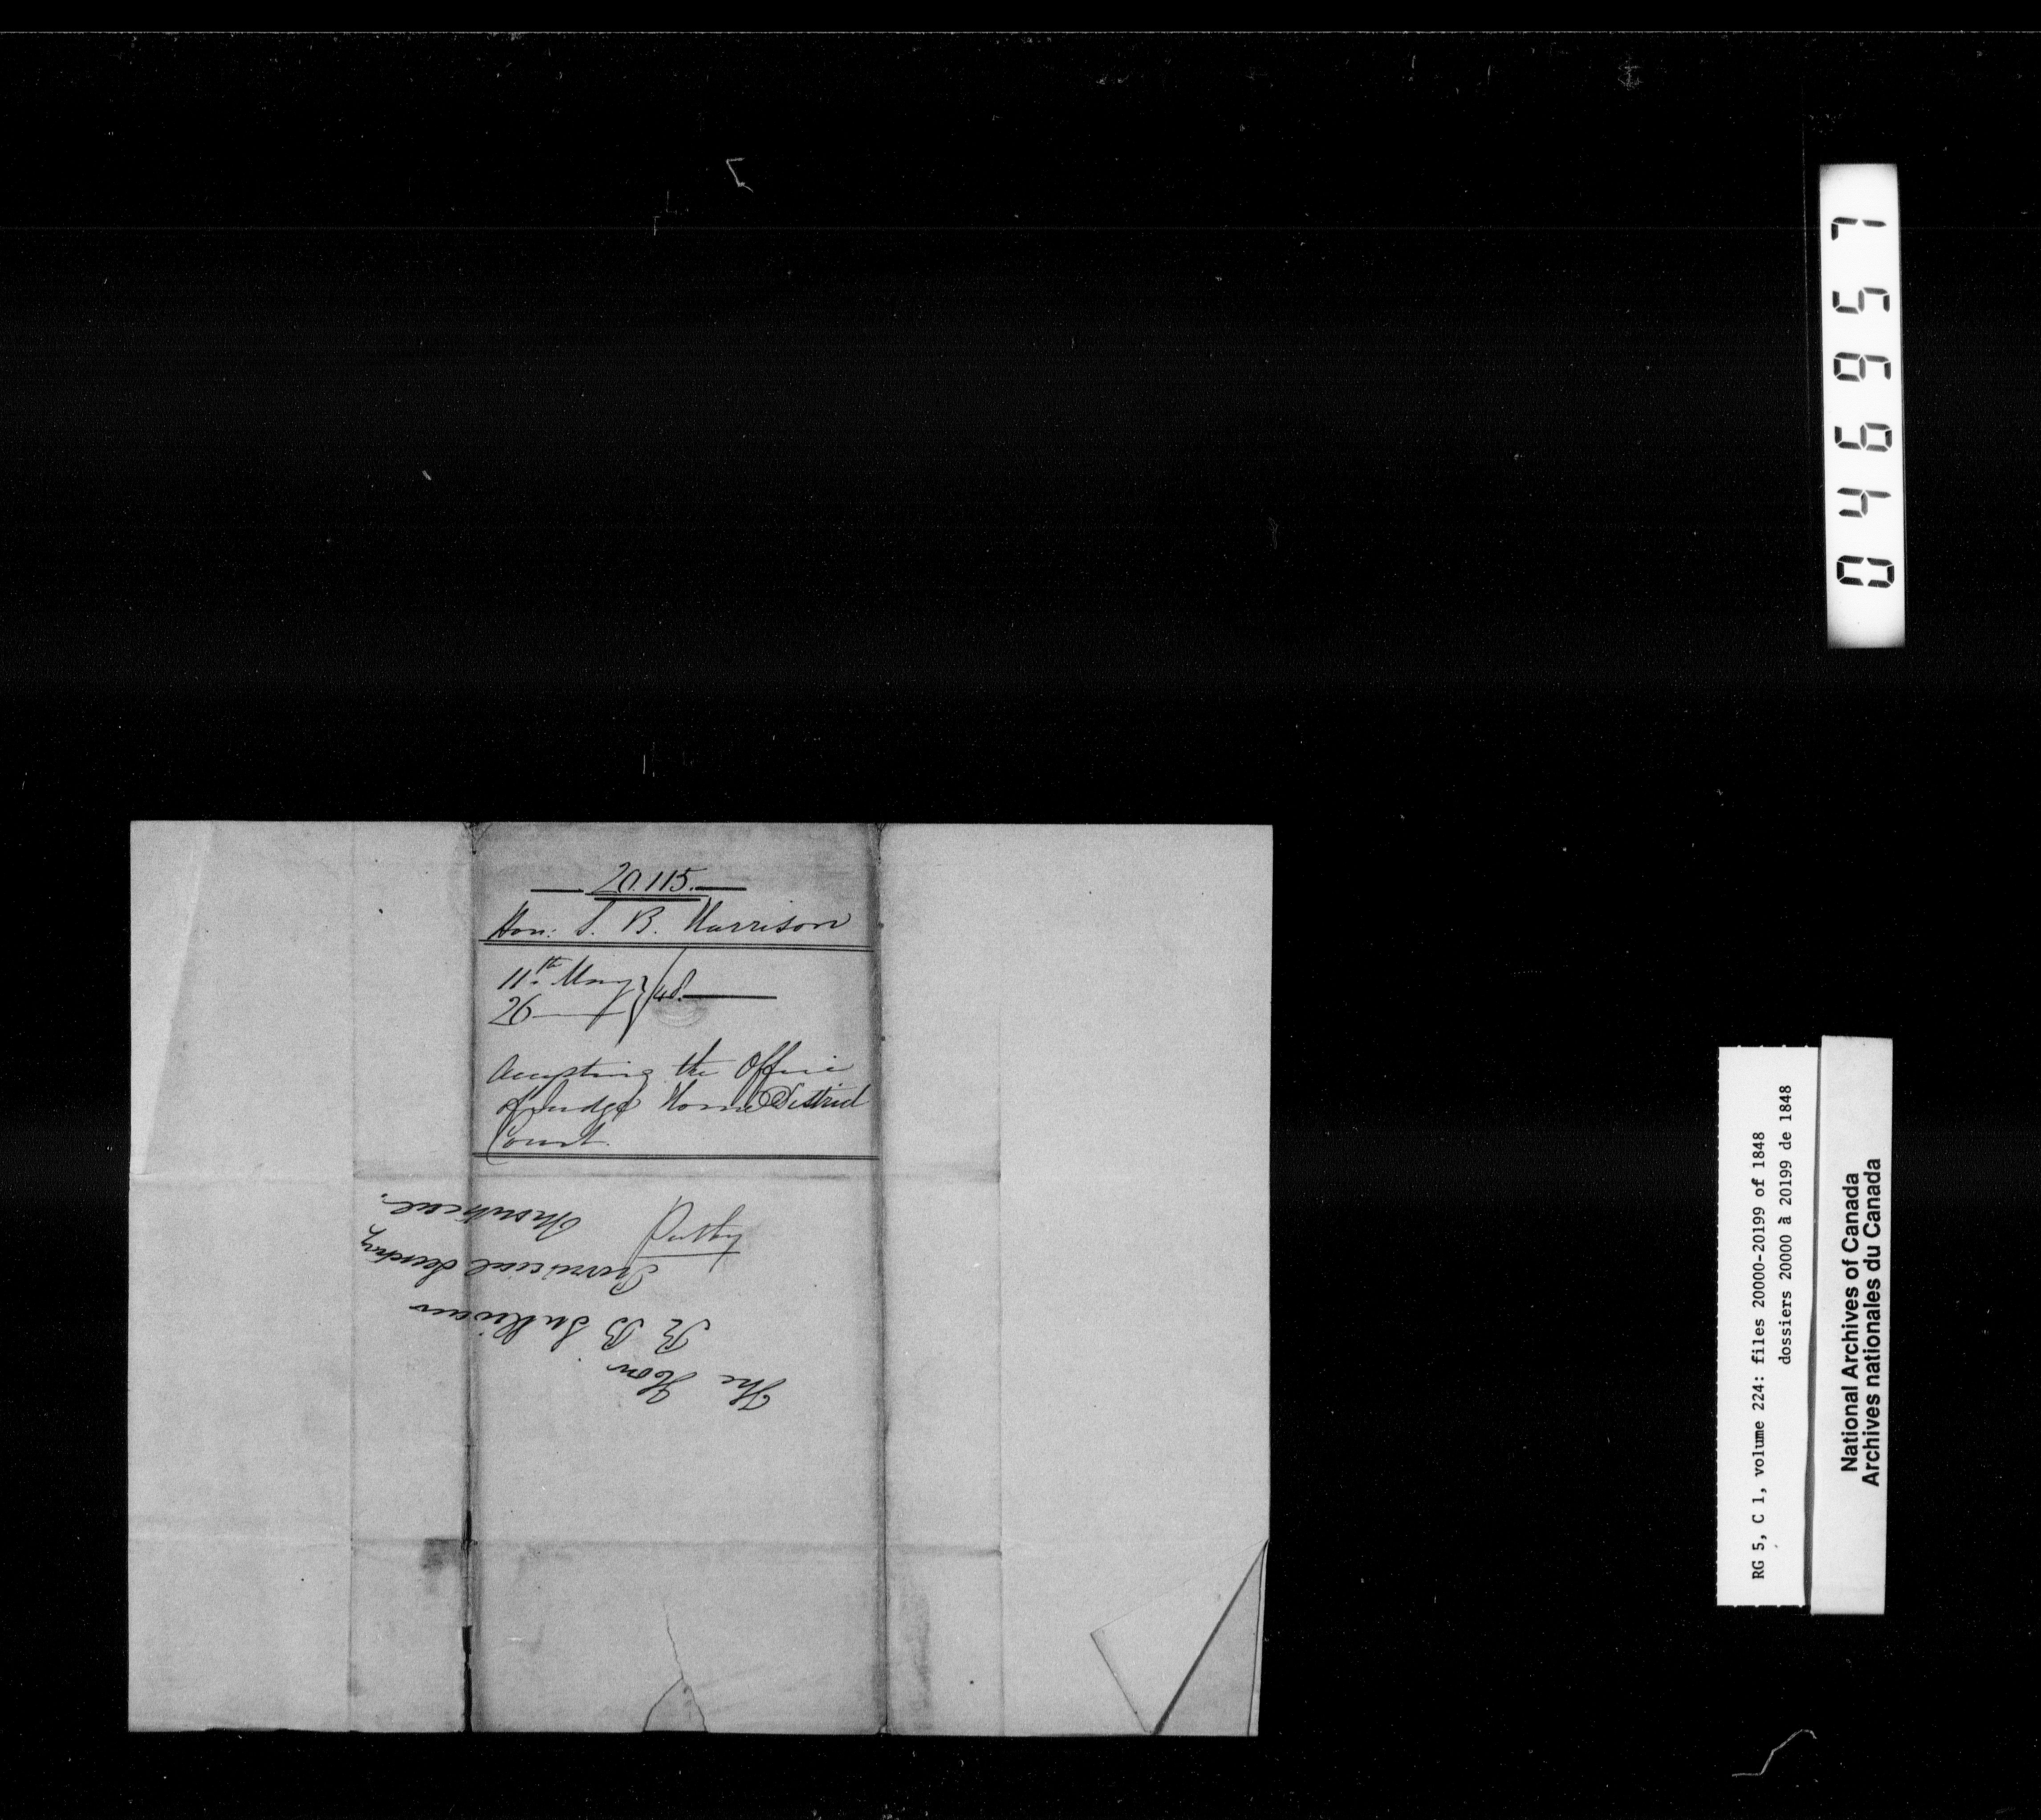 20.115.
Hon: S. B. Harrison
11th May } /48.
26 —
Accepting the Office
of Judge Home District
Court.
The Hon
R B Sullivan
Provincial Secretary
Montreal.
046957
RG 5, C 1, volume 224: files 20000-20199 of 1848
dossiers 20000 à 20199 de 1848
National Archives of Canada
Archives nationales du Canada